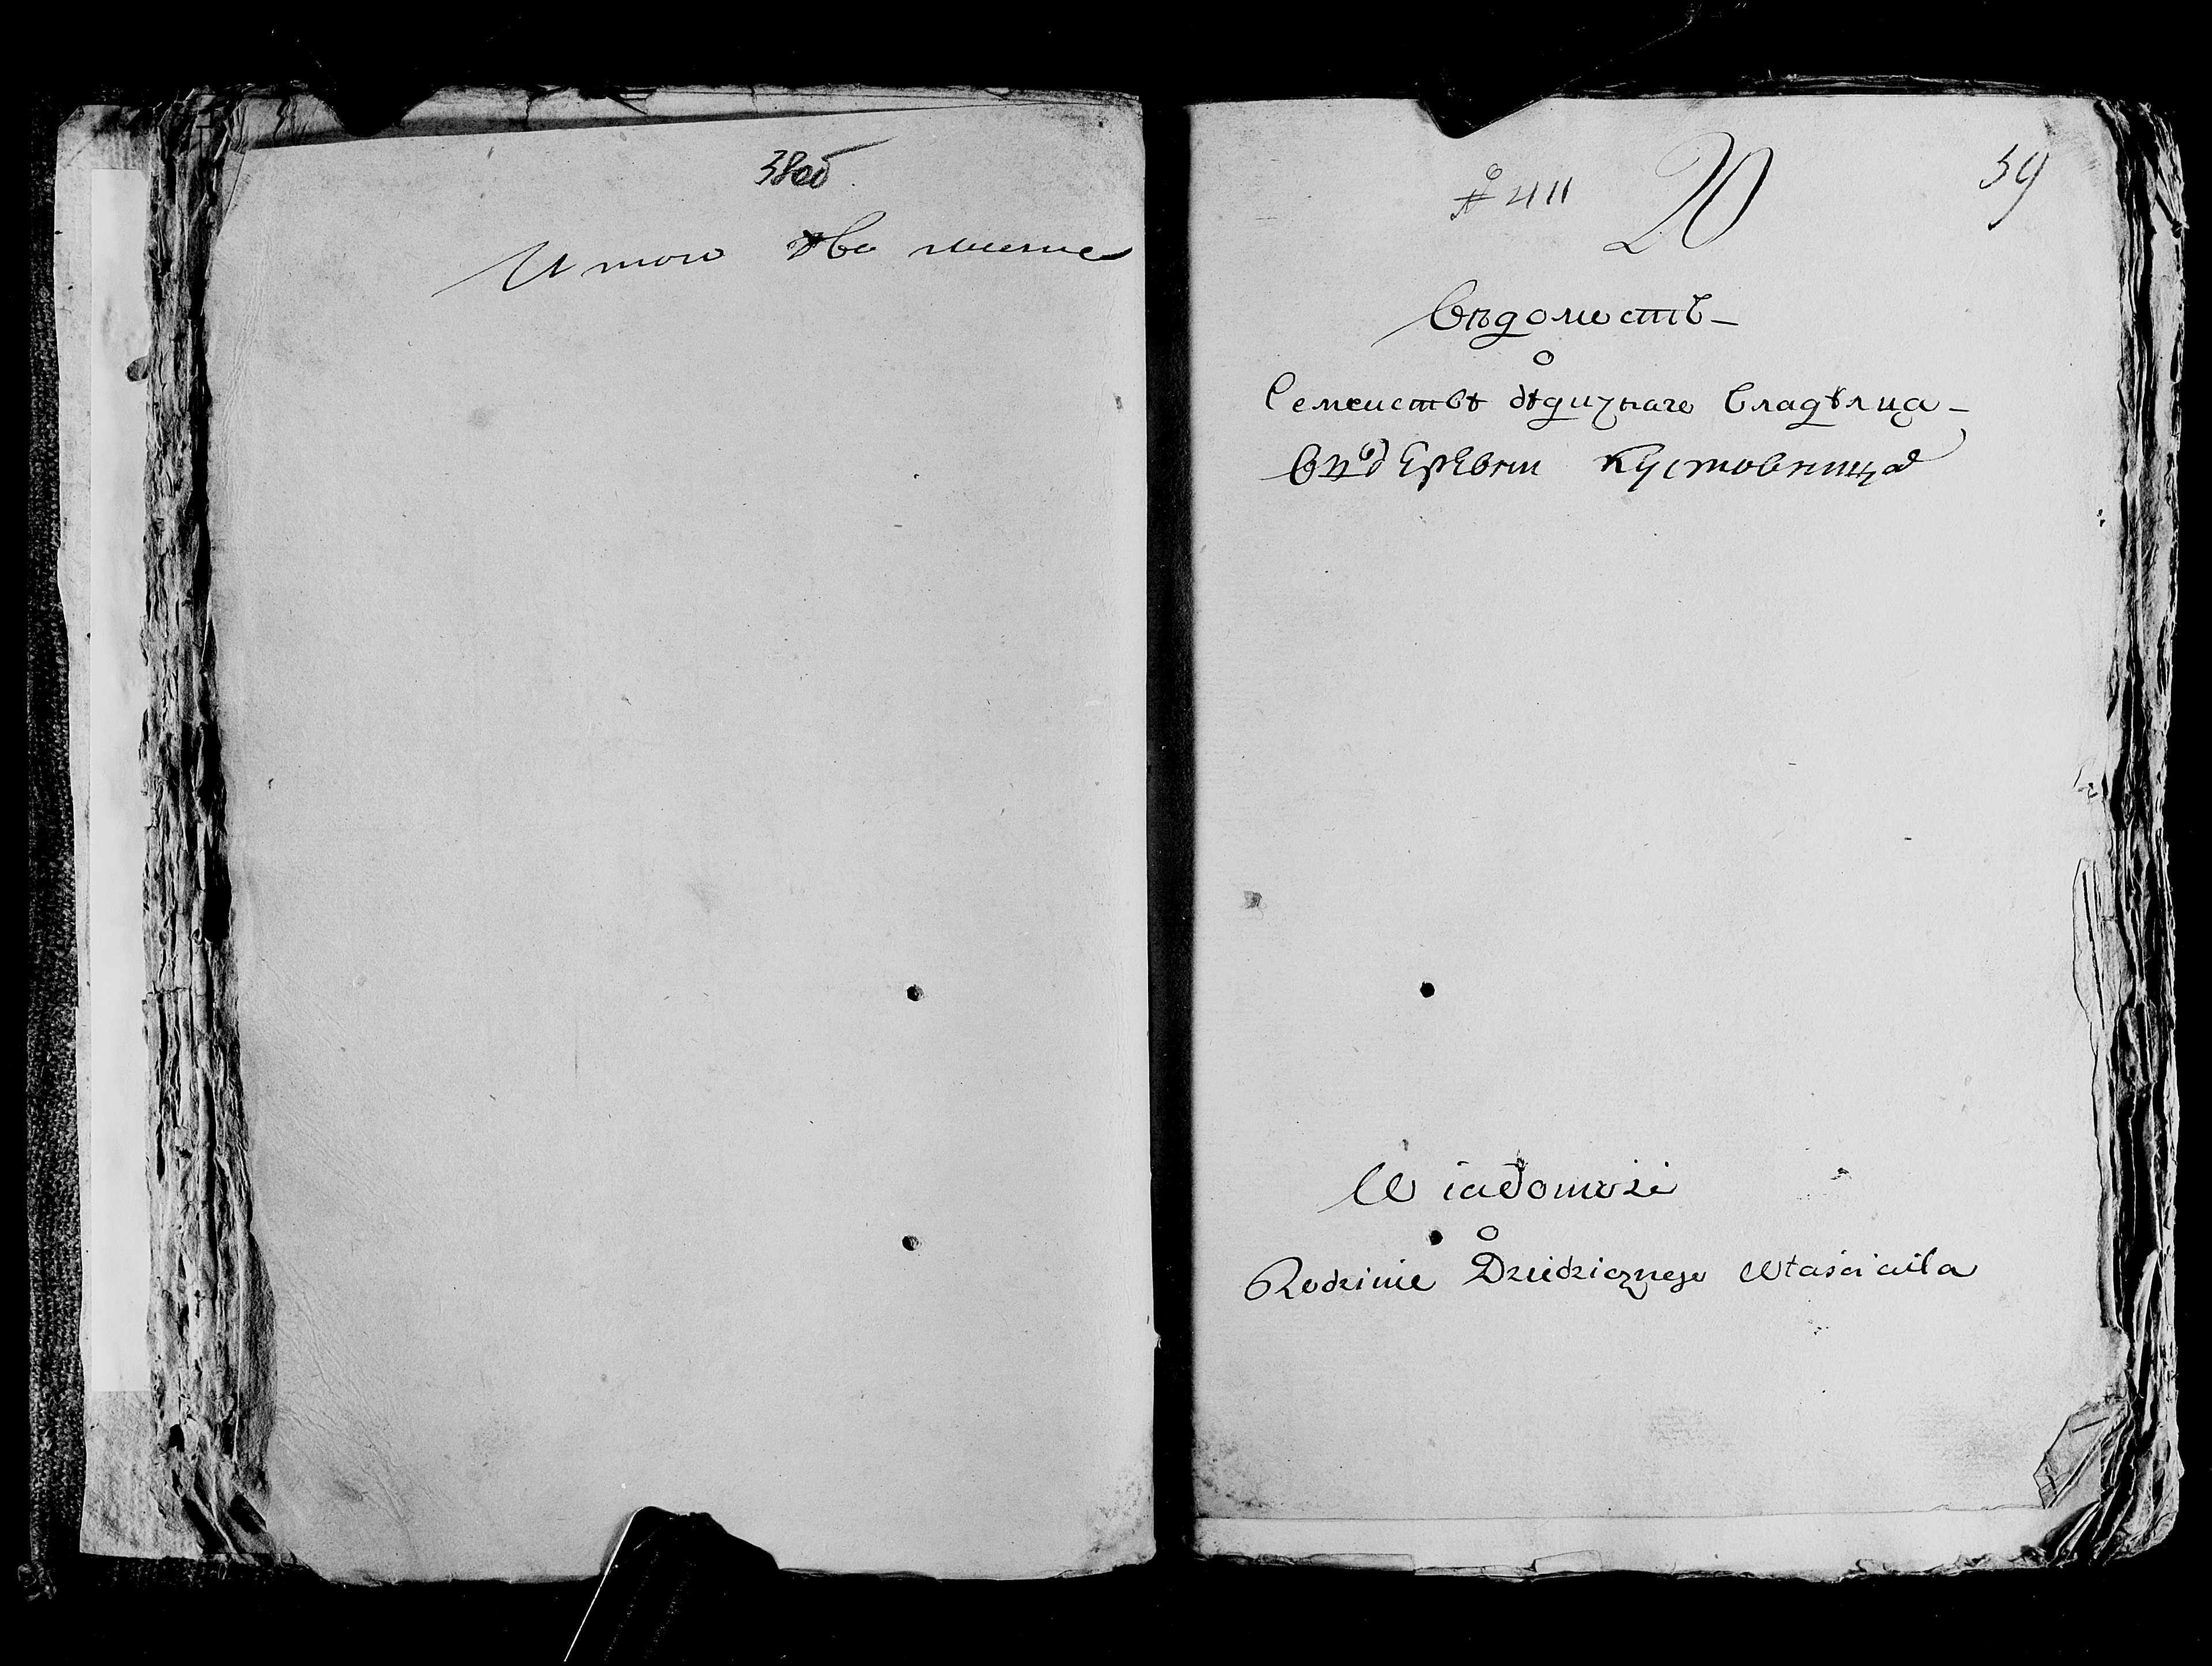 38об.
Итого два листа
№ 411 20 39
Вѣдомость
о
Семействѣ дѣдичнаго Владѣлца
Деревни Кустовница
Wiadomość
o
Rodzinie Dziedzicznego Właściciela